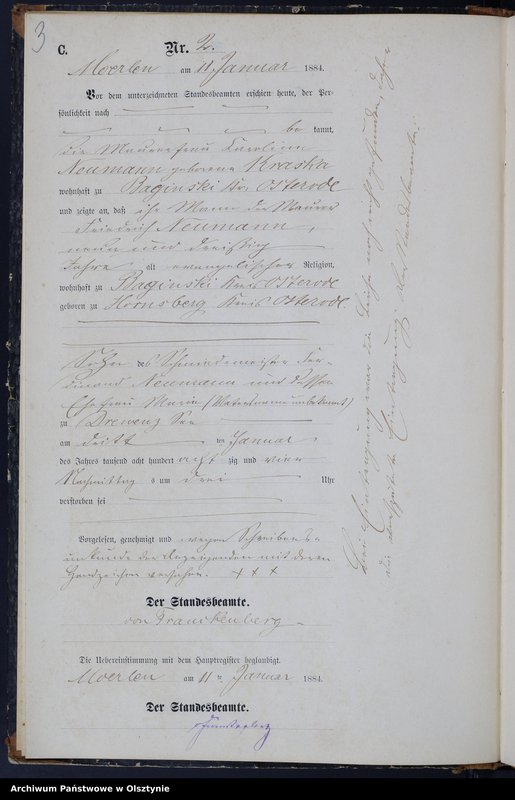 3
C.
Nr. 2.
Moerlen am 11 Januar 1884.
Vor dem unterzeichneten Standesbeamten erschien heute, der Per-
sönlichkeit nach
be kannt,
die Maurerfrau
Neumann geborene Kraska
wohnhaft zu Baginski Kr. Osterode
und zeigte an, daß ihr Mann der Maurer
Friedrich Neumann,
neun und dreissig
Jahre alt evangelischer Religion,
wohnhaft zu Baginski Kreis Osterode
geboren zu Hornsberg Kreis Osterode
Sohn des Schmiedemeister Fer-
dinand Neumann und dessen
Ehefrau Marie (Vatersname unbekannt)
zu Drewenz See
am dritt ten Januar
des Jahres tausend acht hundert acht zig und vier
Nachmittag s um drei Uhr
verstorben sei
Vorgelesen, genehmigt und wegen Schreibens-
unkunde der Anzeigenden mit deren
Handzeichen versehen. + + +
Der Standesbeamte.
von Franckenberg
Die Uebereinstimmung mit dem Hauptregister beglaubigt.
Moerlen am 11 ten Januar 1884.
Der Standesbeamte.
Bei Eintragung war die Leiche noch nicht gefunden, daher
die Eintragung. Der Standesbeamte.
Archiwum Państwowe w Olsztynie